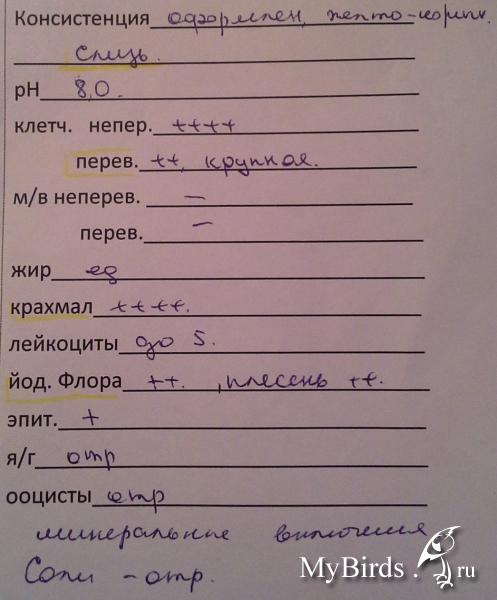 Консистенция оформлен, желто-коричн.
слизь.
pH 8,0.
клетч. непер. ++++
перев. ++, крупная.
м/в неперев. —
перев. —
жир ед
крахмал ++++.
лейкоциты до 5.
йод. Флора ++. , плесень ++.
эпит. +
я/г отр
ооцисты отр
минеральные включения
Соли - отр.
MyBirds.ru